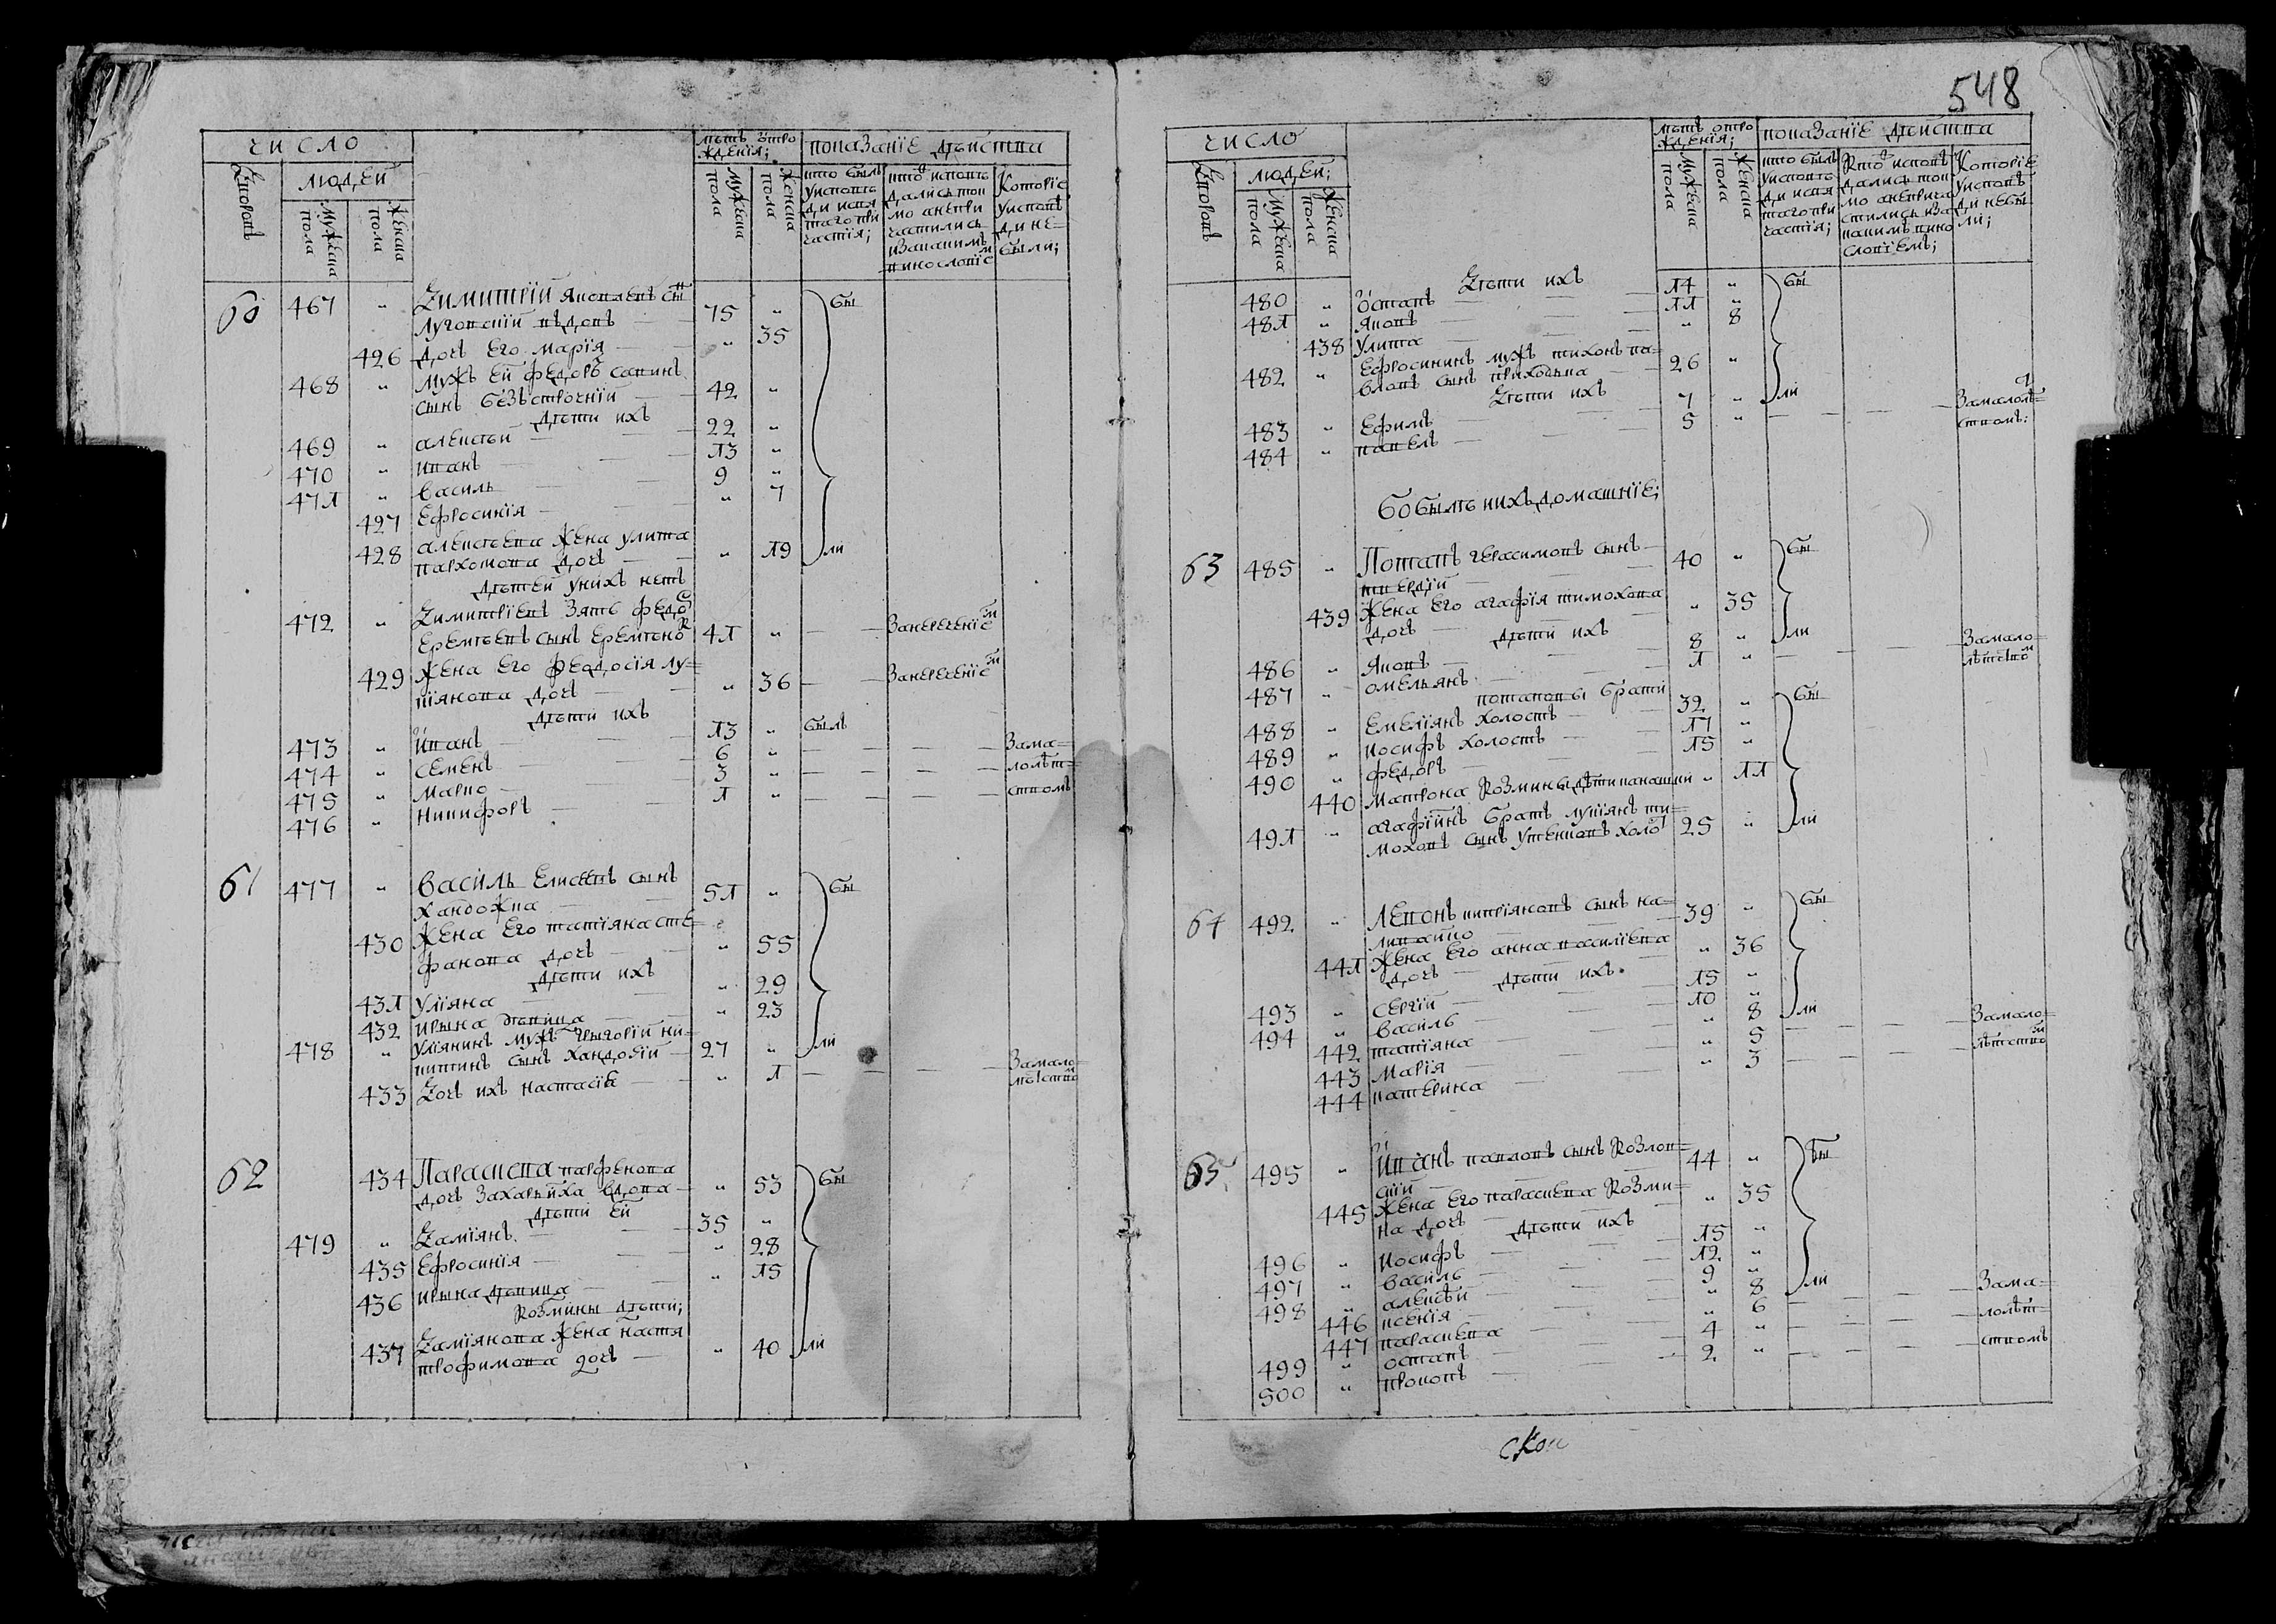 548
ЧИСЛО
лѣтъ ѿ рождения;
показанїе дѣйства
дворовъ
людей
мужеска пола
женска пола
мужеска пола
женска пола
кто былъ у исповѣди и свята го причастїя;
кто исповѣдались токмо а не причастились и за какимъ винословїемъ
Которїе у исповѣди не были;
60 467 „ Димитрїй яковлевъ сынъ
Луговскїй вдовъ 75 „ бы
426 дочь его марїя „ 35
468 „ мужъ ей федоръ савинъ
сынъ безвстрочнїй 42 „
дѣти ихъ
469 „ алексѣй 22 „
470 „ иванъ 13 „
471 „ василь 9 „
427 Ефросинїя „ 7
428 алексѣева жена улита
пархомова дочь „ 19 ли
дѣтей у нихъ нетъ
472 „ Димитрїевъ зять федо
еремѣевъ сынъ еремѣенко 41 „ — за нерченїем
429 жена его феодосїя лу=
кїянова дочь „ 36 — за нерченїем
дѣти ихъ
473 „ иванъ 13 „ былъ
474 „ семенъ 6 „ — — — за ма=
475 „ марко 3 „ — — — лолѣт=
476 „ никифоръ 1 „ — — — ствомъ
61 477 „ василь Елисеевъ сынъ
хандожка 51 „ бы
430 жена его татїяна сте=
фанова дочь „ 55
дѣти ихъ
431 улїяна „ 29
432 ирына дѣвица „ 23
478 „ улїянинъ мужъ григорїй ни=
китинъ сынъ хандогїй 27 „ ли
433 дочь ихъ настасїя „ 1 — — — за малолѣтством
62 434 Параскева парфенова
дочь захарьиха вдова „ 53 бы
дѣти ей
479 „ дамїянъ 35 „
435 Ефросинїя „ 28
436 ирына дѣвица „ 15
козмины дѣти;
437 дамїянова жена настя
трофимова дочь „ 40 ли
ЧИСЛО
лѣтъ ѿ рождения;
показанїе дѣйства
дворовъ
людей;
мужеска пола
женска пола
мужеска пола
женска пола
кто былъ у исповѣди и свята го причастїя;
Кто исповѣдались токмо а не причастились и за каким винословїемъ;
Которїе у исповѣди не были;
дѣти ихъ
480 „ остапъ 14 „ бы
481 „ яковъ 11 „
438 улита „ 8
482 „ Ефросининъ мужъ тихонъ па=
вловъ сынъ приходка 26 „
дѣти ихъ
483 „ Ефимъ 7 „ ли
484 „ павелъ 5 „ — — — за малолѣтствомъ;
бобылѣ ихъ домашнїе;
63 485 „ Потапъ герасимовъ сынъ
твердїй 40 „ бы
439 жена его агафїя тимохова
дочь „ 35
дѣти ихъ
486 „ яковъ 8 „ ли
487 „ омельянъ 1 „ — — — за малолѣтством
потаповы брати
488 „ Емелїянъ холостъ 32 „ бы
489 „ иосифъ холостъ 17 „
490 „ федоръ 15 „
440 матрона козмины дѣти „ 11
491 „ агафїинъ братъ лукїянъ ти=
мохов сынъ утенковъ холо 25 „ ли
64 492 „ Левонъ кипрїяновъ сынъ на=
ливайко 39 „ бы
441 жена его анна василїева
дочь „ 36
дѣти ихъ
493 „ сергїй 15 „
494 „ василь 10 „
442 татїяна „ 8 ли
443 марїя „ 5 — — — за мало=
444 катерина „ 3 — — — лѣтством
65 495 „ иванъ павловъ сынъ козлов=
скїй 44 „ бы
445 жена его параскева козми=
на дочь „ 35
дѣти ихъ
496 „ иосифъ 15 „
497 „ василь 12 „
498 „ алексѣй 9 „
446 ксенїя „ 8 ли
447 параскева „ 6 — — — за ма=
499 „ остапъ 4 „ — — — лолѣт=
500 „ прокопъ 2 „ — — — ствомъ